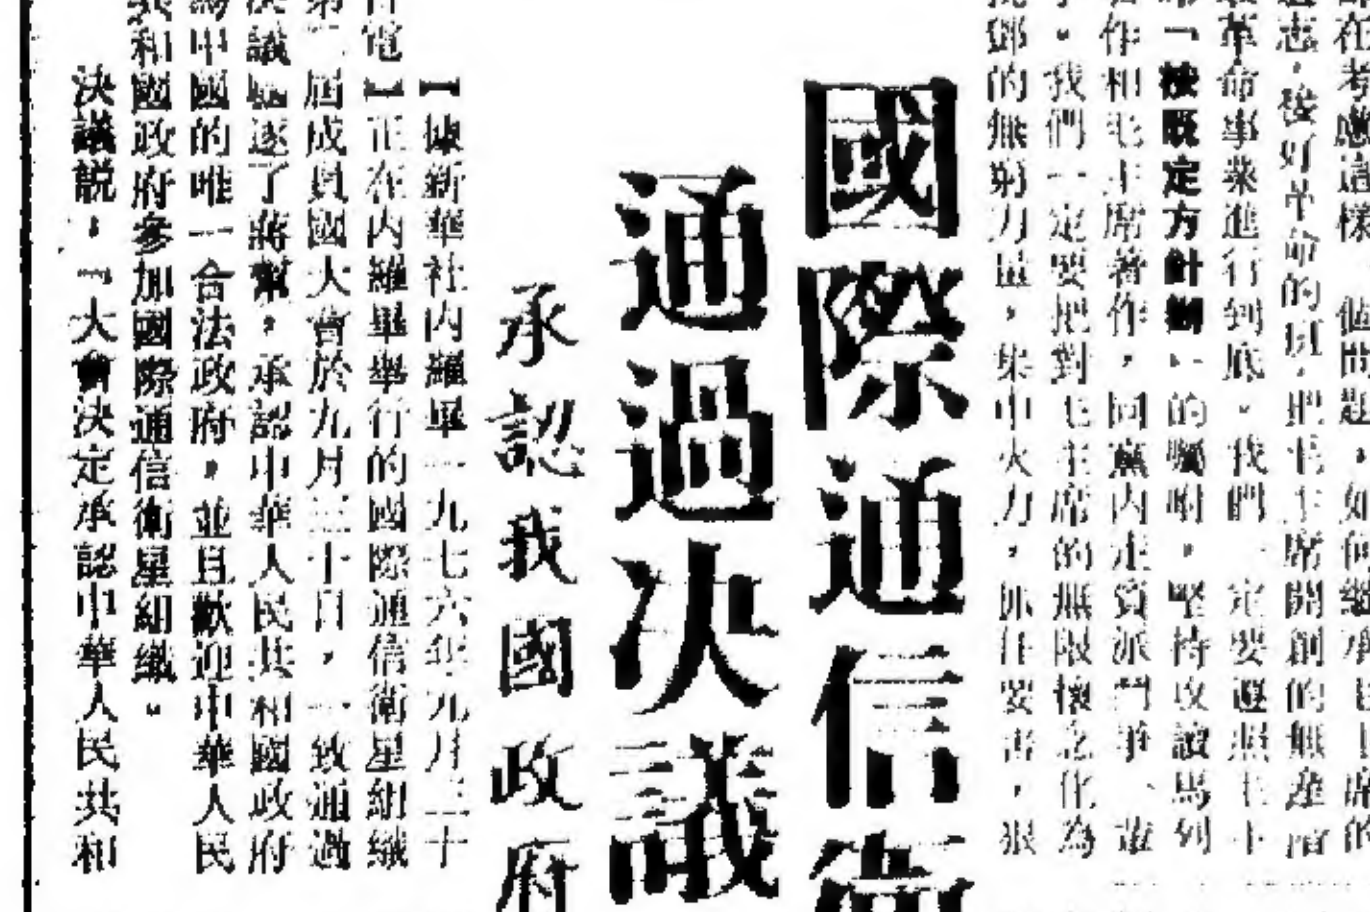 部在考慮這樣一個問題，如何繼承毛主席的
志，接好革命的班，把毛主席開創的無產階
革命事業進行到底。我們一定要遵照毛主
「按既定方針辦」的囑咐，堅持攻讀馬列
作和毛主席著作，同黨內走資派鬥爭
。我們一定要把對毛主席的無限懷念化為
批鄧的無窮力量，集中火力，抓住要害，狠
國際通信衛
通過決議
承認我國政府
【據新華社內羅畢一九七六年九月三十
日電】正在內羅畢舉行的國際通信衛星組織
第二屆成員國大會於九月三十日，一致通過
決議驅逐了蔣幫，承認中華人民共和國政府
為中國的唯一合法政府，並且歡迎中華人民
共和國政府參加國際通信衛星組織。
決議説，「大會決定承認中華人民共和